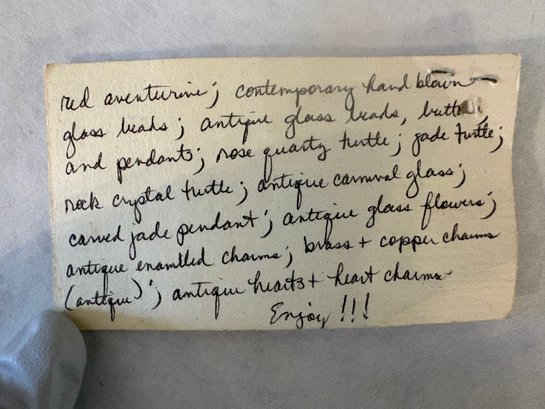 red aventurine; contemporary hand blown
glass beads; antique glass beads, buttons,
and pendants; rose quartz turtle; jade turtle;
rock crystal turtle; antique carnival glass;
carved jade pendant; antique glass flowers;
antique enamlled charms; brass + copper charms
(antique); antique hearts + heart charms
Enjoy!!!